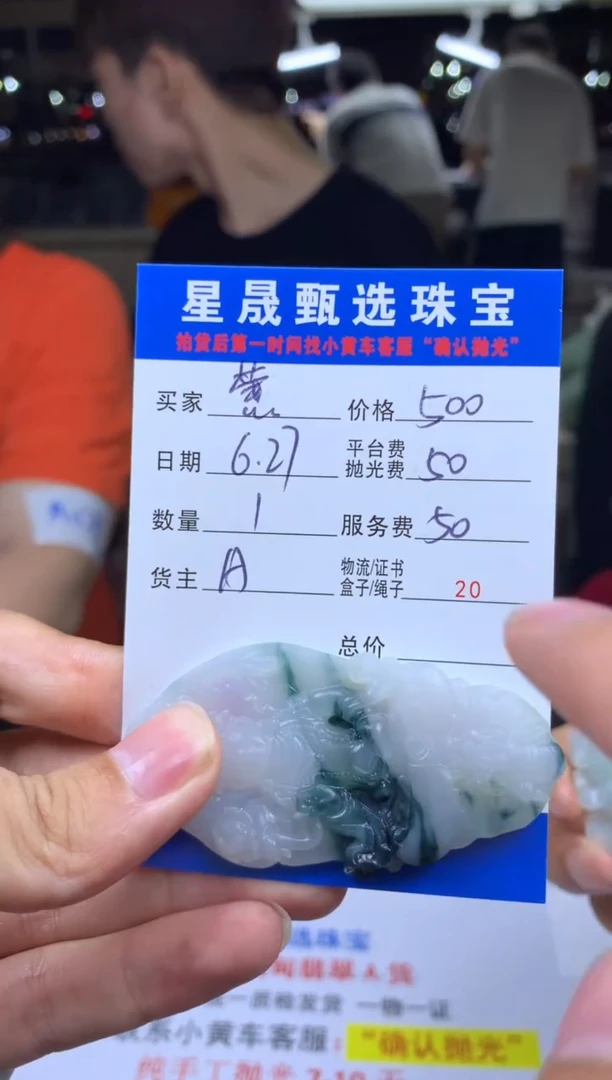 星晟甄选珠宝
拍货后第一时间找小黄车客服“确认抛光”
买家 价格 500
日期 6.27 平台费 抛光费 50
数量 1 服务费 50
货主 A 物流/证书 盒子/绳子 20
总价
选珠宝
翡翠A货
发货 一物一证
系小黄车客服：“确认抛光”
纯手工抛光 7-10天